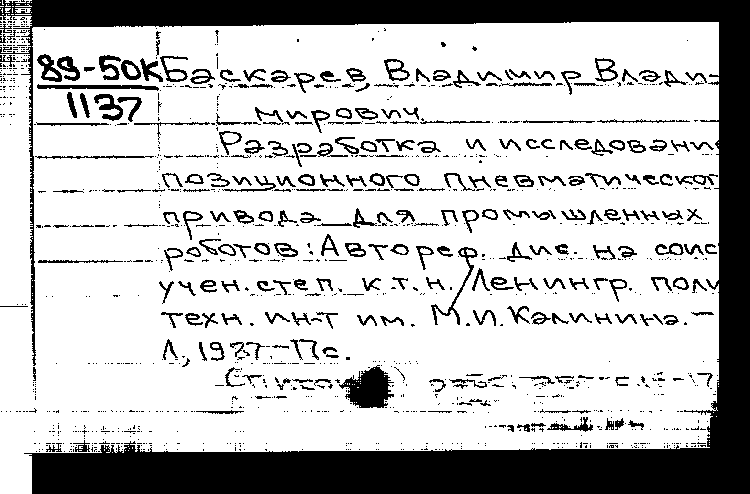 89-50К Баскарев, Владимир Влади-
1137 мирович.
Разработка и исследование
позиционного пневматическог
привода для промышленных
роботов: Автореф. дис. на соис
учен. степ. к.т.н. / Ленингр. поли
техн. ин-т им. М.И. Калинина. -
Л, 1987. - 17с.
Список работ авт. с. 16-17